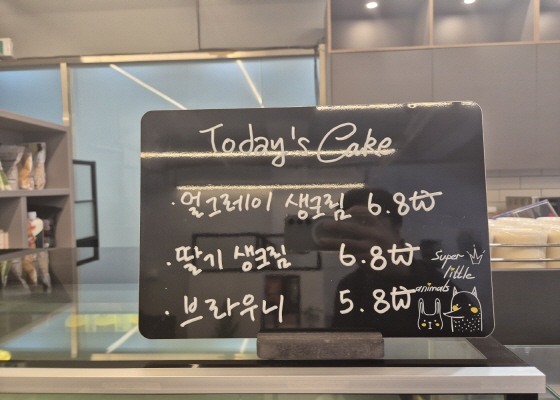 Today's Cake
· 얼그레이 생크림 6.8₩
· 딸기 생크림 6.8₩
· 브라우니 5.8₩
Super
little
animals